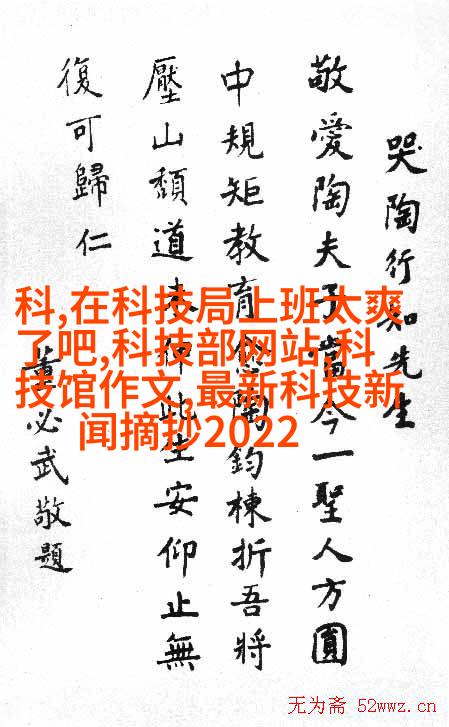 哭陶行知先生
敬愛陶夫子當今一聖人方圓
中規矩教育陶鈞棟折吾將
壓山頹道未伸此生安仰止無
復可歸仁
董必武敬題
科,在科技局上班太爽
了吧,科技部网站,科
技馆作文,最新科技新
闻摘抄2022
无为斋 52wwz.cn